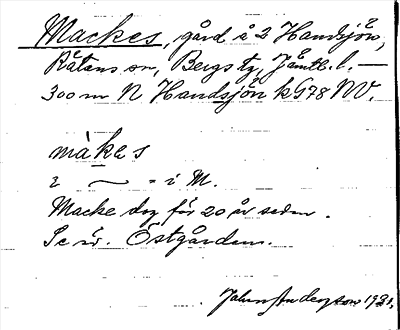 Mackes, gård å 2 Handsjön,
Rätans sn, Bergs tg, Jämtl. l. —
300 m N Handsjön k G78 NV.
màkes
i ~ = i M.
Macke dog för 20 år sedan.
Se äv. Östgården.
Johns Anderzson 1931.